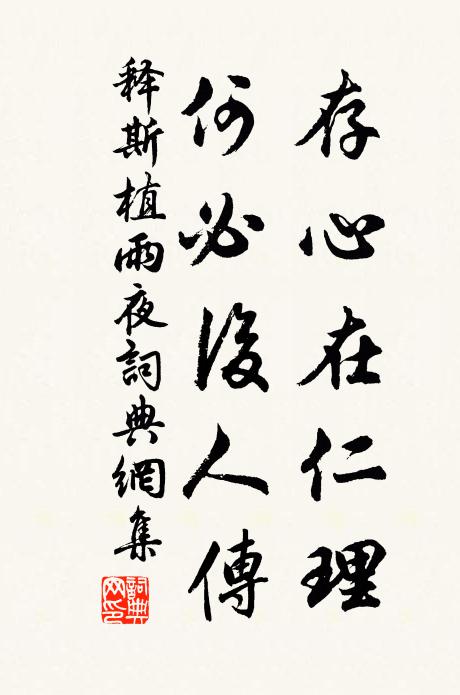 存心在仁理
何必後人傳
释斯植雨夜詞典網集
詞典網印